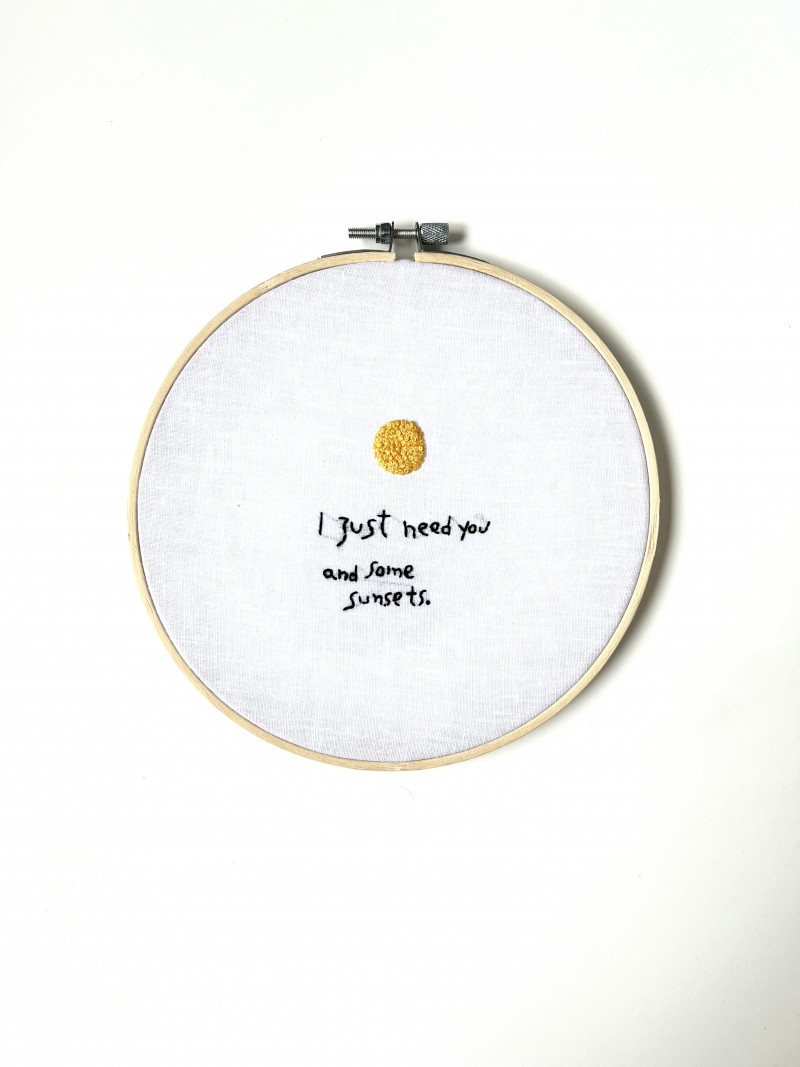 I just need you
and some
sunsets.